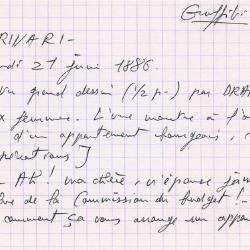 Graffiti
RIVARI -
di 21 juin 1886.
un grand dessin (1/2 p.) par DRA
x femmes. L'une montre à l'a
d'un appartement bourgeois,
pérations]
Ah! ma chère, n'épouse jam
bre de la Commission du budget! -
comment ça vous arrange un appa